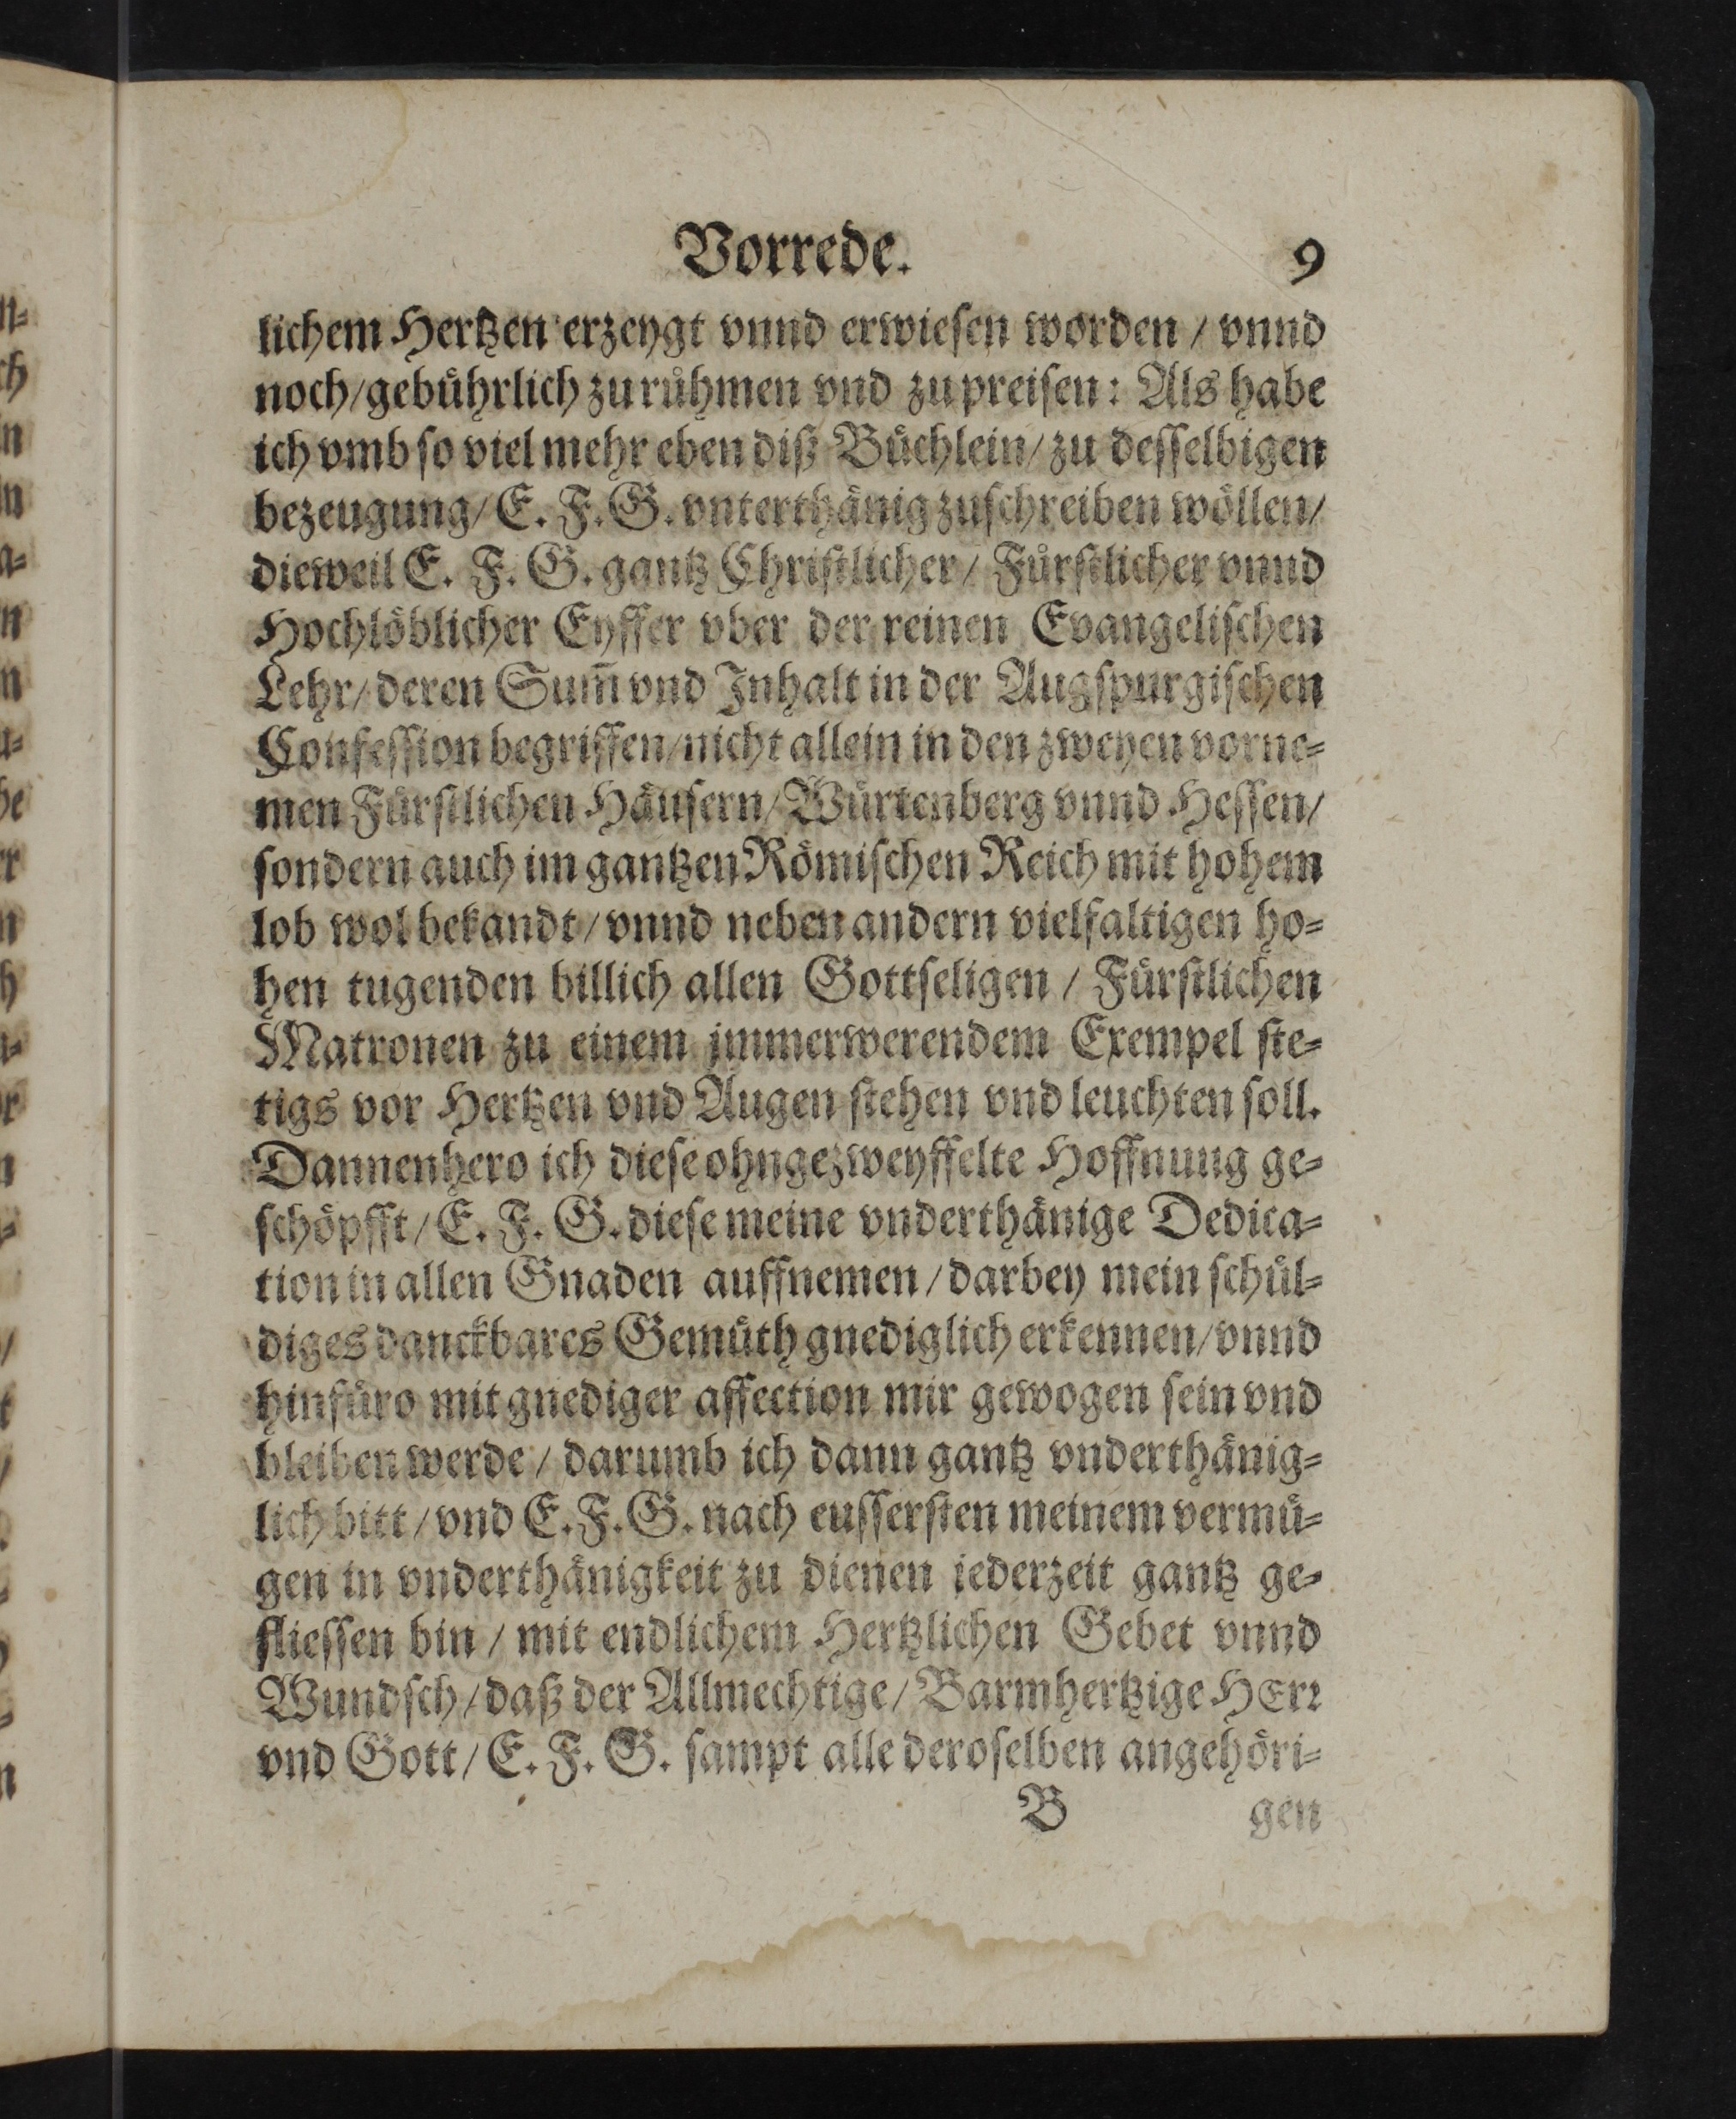 Vorrede. 9
lichem Hertzen erzeygt vnnd erwiesen worden / vnnd
noch/gebührlich zu rühmen vnd zu preisen: Als habe
ich vmb so viel mehr eben diß Büchlein/ zu desselbigen
bezeugung/ E. F. G. vnterthänig zuschreiben wöllen/
dieweil E. F. G. gantz Christlicher / Fürstlicher vnnd
Hochlöblicher Eyffer vber der reinen Evangelischen
Lehr/ deren Sum̃ vnd Inhalt in der Augspurgischen
Confession begriffen/nicht allein in den zweyen vorne⸗
men Fürstlichen Häusern/ Würtenberg vnnd Hessen/
sondern auch im gantzen Römischen Reich mit hohem
lob wol bekandt / vnnd neben andern vielfaltigen ho⸗
hen tugenden billich allen Gottseligen / Fürstlichen
Matronen zu einem jmmerwerendem Exempel ste⸗
tigs vor Hertzen vnd Augen stehen vnd leuchten soll.
Dannenhero ich diese ohngezweyffelte Hoffnung ge⸗
schöpfft / E. F. G. diese meine vnderthänige Dedica⸗
tion in allen Gnaden auffnemen / darbey mein schül⸗
diges danckbares Gemüth gnediglich erkennen/ vnnd
hinfüro mit gnediger affection mir gewogen sein vnd
bleiben werde / darumb ich dann gantz vnderthänig⸗
lich bitt / vnd E. F. G. nach eussersten meinem vermü⸗
gen in vnderthänigkeit zu dienen jederzeit gantz ge⸗
fliessen bin / mit endlichem Hertzlichen Gebet vnnd
Wundsch / daß der Allmechtige / Barmhertzige HErr
vnd Gott / E. F. G. sampt alle deroselben angehöri⸗
B gen